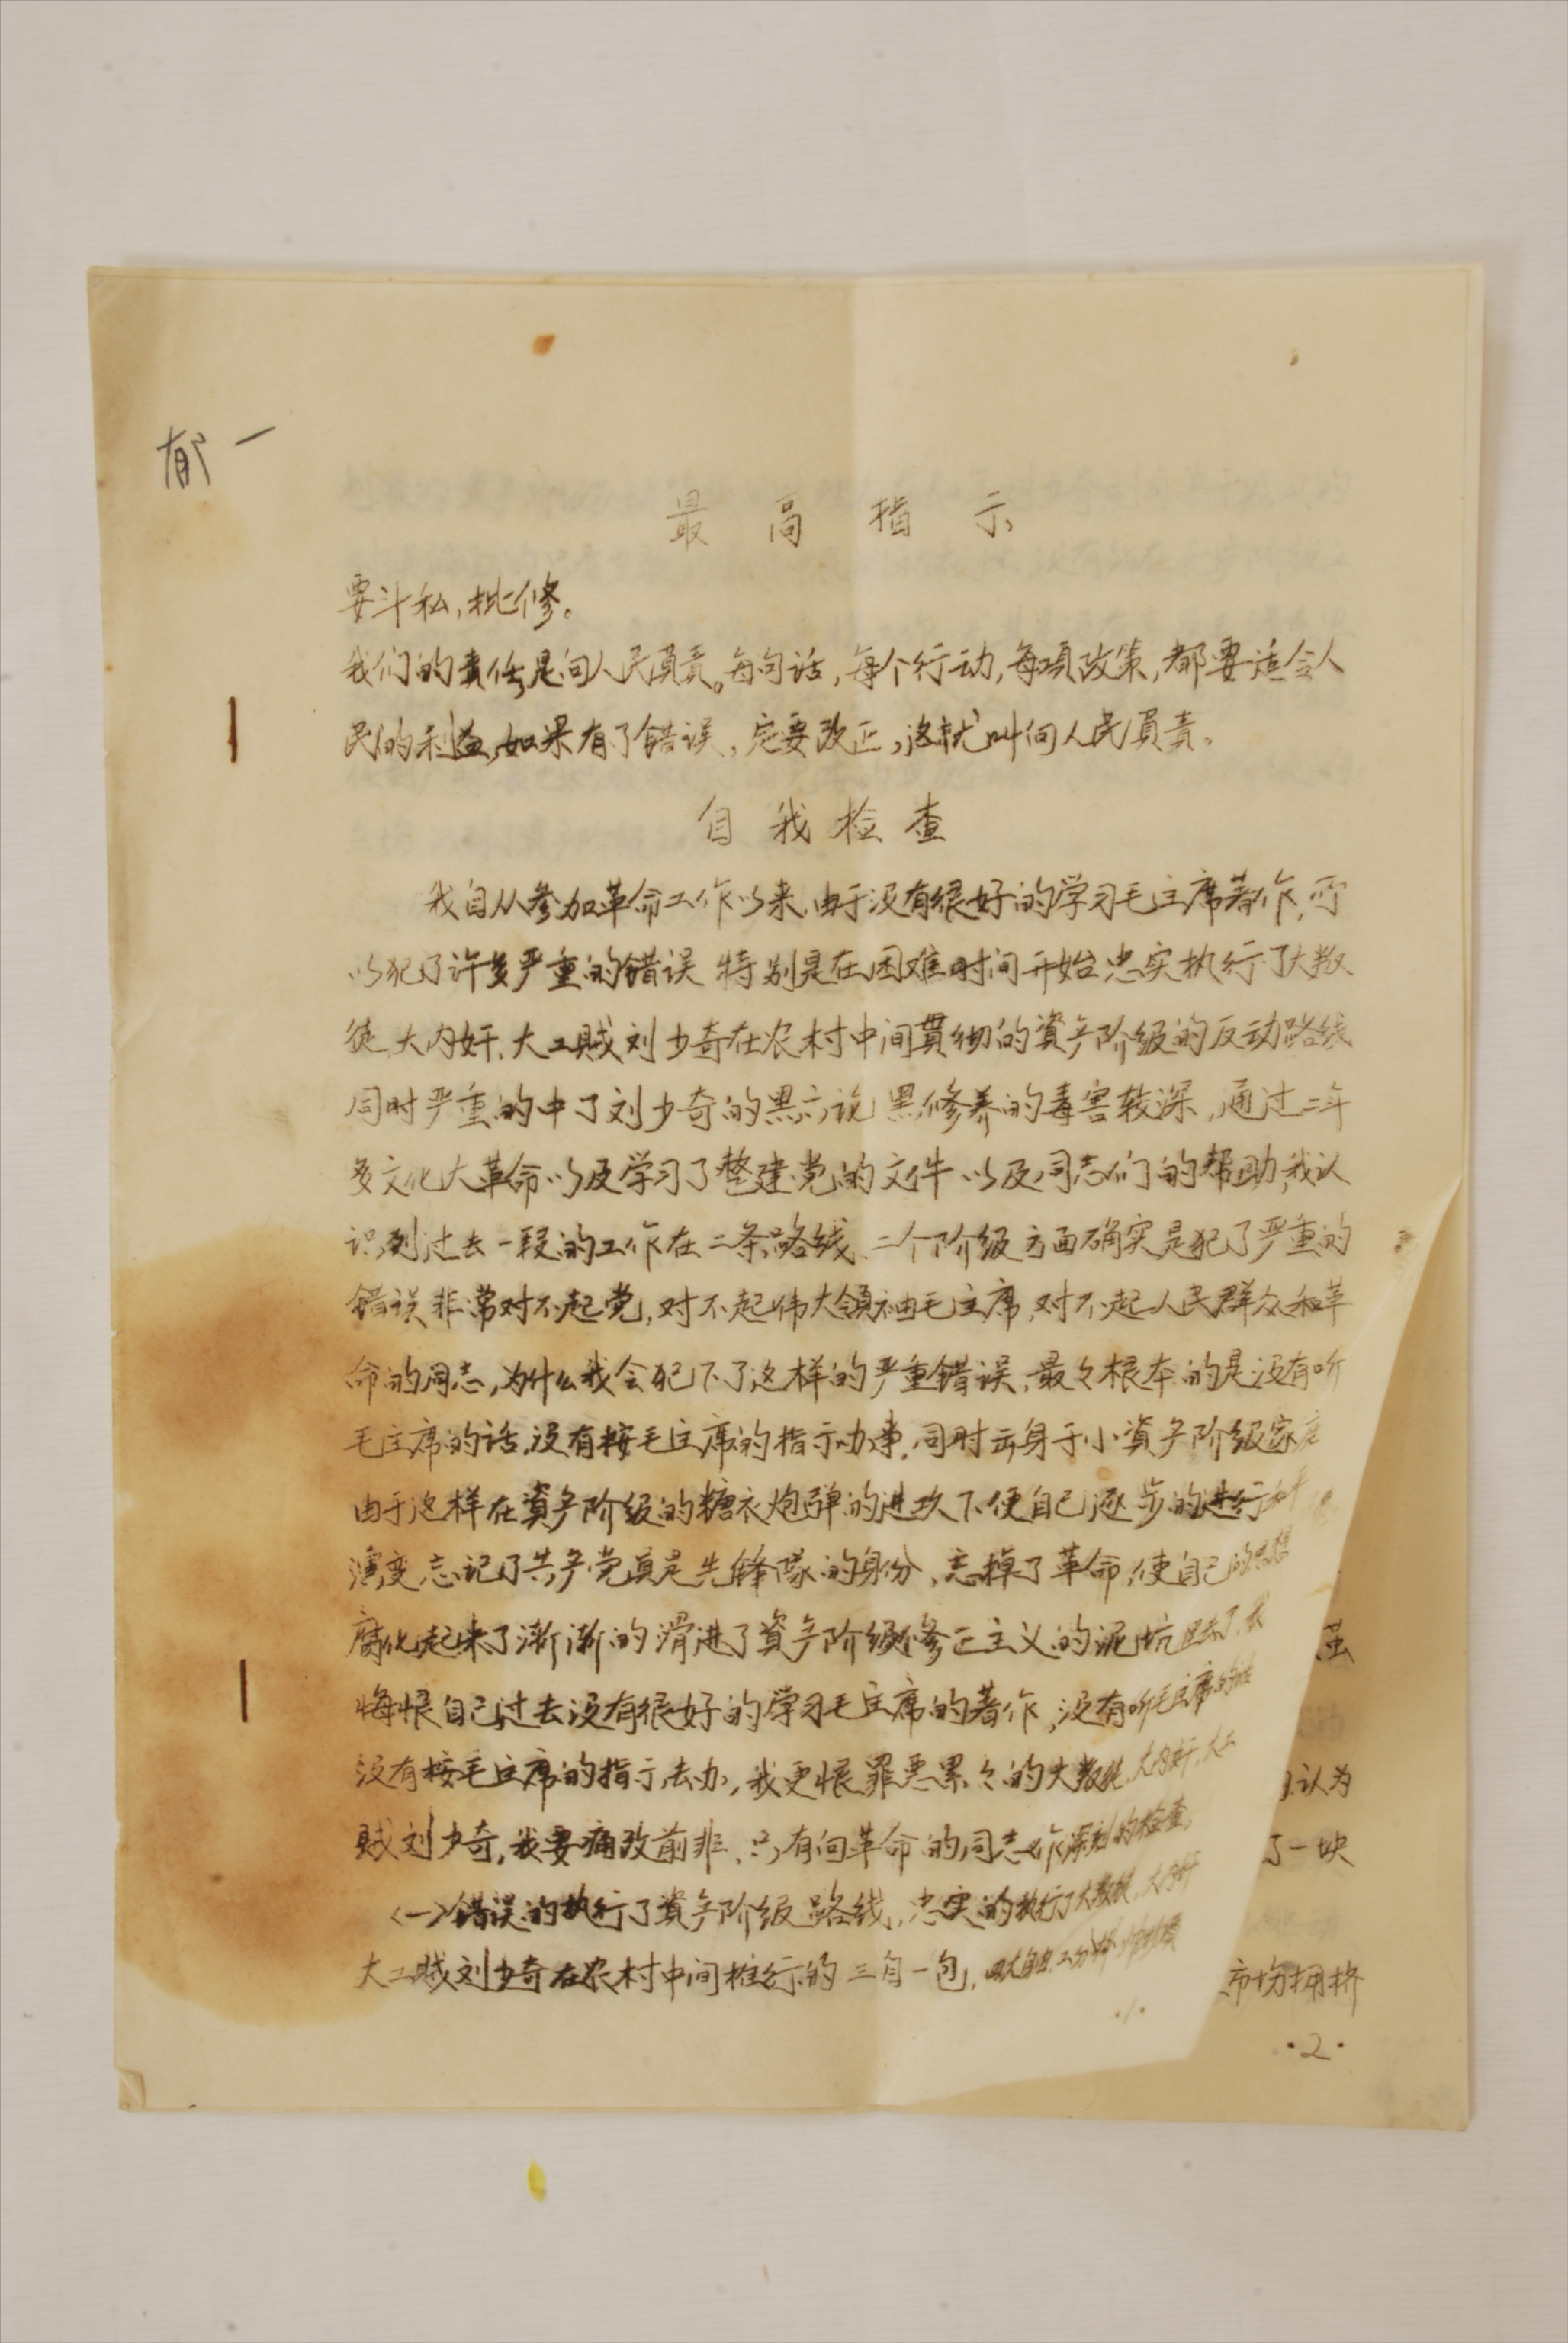 郁一
最高指示
要斗私,批修。
我们的責任是向人民負責。每句话,每个行动,每項政策,都要适合人
民的利益,如果有了错误,定要改正,这就叫向人民負責。
自我检查
我自从参加革命工作以来,由于没有很好的学习毛主席著作,所
以犯了许多严重的错误 特别是在困难时间开始忠实执行了大叛
徒、大内奸、大工賊刘少奇在农村中间贯彻的資产阶级的反动路线
同时严重的中了刘少奇的黑六说 黑修养的毒害较深,通过二年
多文化大革命以及学习了整建党的文件以及同志们的帮助,我认
识到过去一段的工作在二条路线、二个阶级方面确实是犯了严重的
错误 非常对不起党,对不起伟大領袖毛主席,对不起人民群众和革
命的同志,为什么我会犯下了这样的严重错误,最々根本的是没有听
毛主席的话,没有按毛主席的指示办事,同时出身于小資产阶级家庭
由于这样在資产阶级的糖衣炮弹的进攻下使自己逐步的进行和平
演变 忘记了共产党員是先锋隊的身份,忘掉了革命,使自己的思想
腐化起来了渐渐的滑进了資产阶级修正主义的泥坑 我
悔恨自己过去没有很好的学习毛主席的著作,没有听毛主席的话
没有按毛主席的指示去办,我更恨罪恶累々的大叛徒、大内奸、大工
賊刘少奇,我要痛改前非,只有向革命的同志作深刻的检查,
<一>错误的执行了資产阶级路线,忠实的执行了大叛徒、大内奸
大工賊刘少奇在农村中间推行的三自一包,四大自由、工分挂帅
·1·
茧
认为
了一块
市场拥挤
·2·